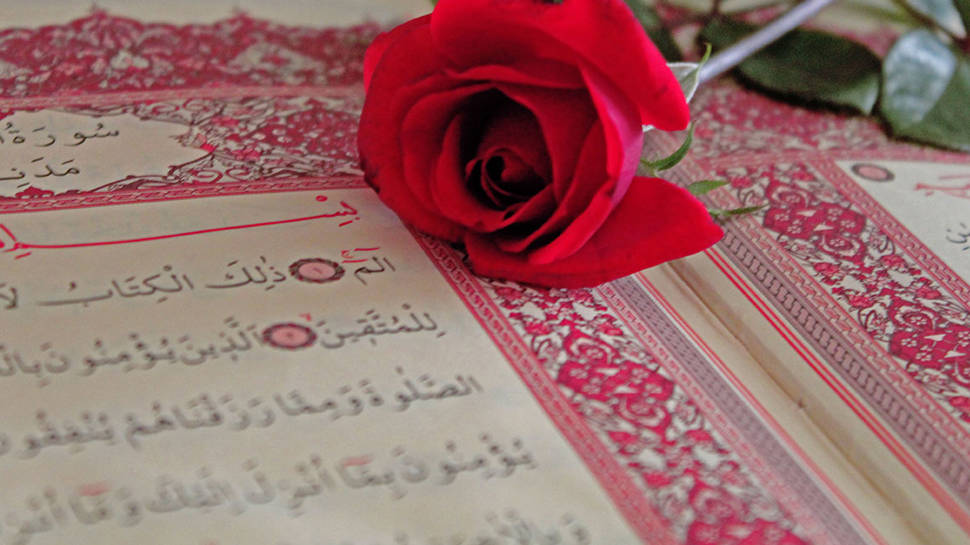 سُورَةُ
مَدَنِ
بِسْــــمِ
الٓمٓ ١ ذٰلِكَ الْكِتَابُ لَا
لِلْمُتَّقٖينَ ٢ اَلَّذٖينَ يُؤْمِنُونَ بِالْ
الصَّلٰوةَ وَمِمَّا رَزَقْنَاهُمْ يُنْفِقُونَ
يُؤْمِنُونَ بِمَٓا اُنْزِلَ اِلَيْكَ وَمَٓا اُنْزِ
وَبِالْاٰخِ